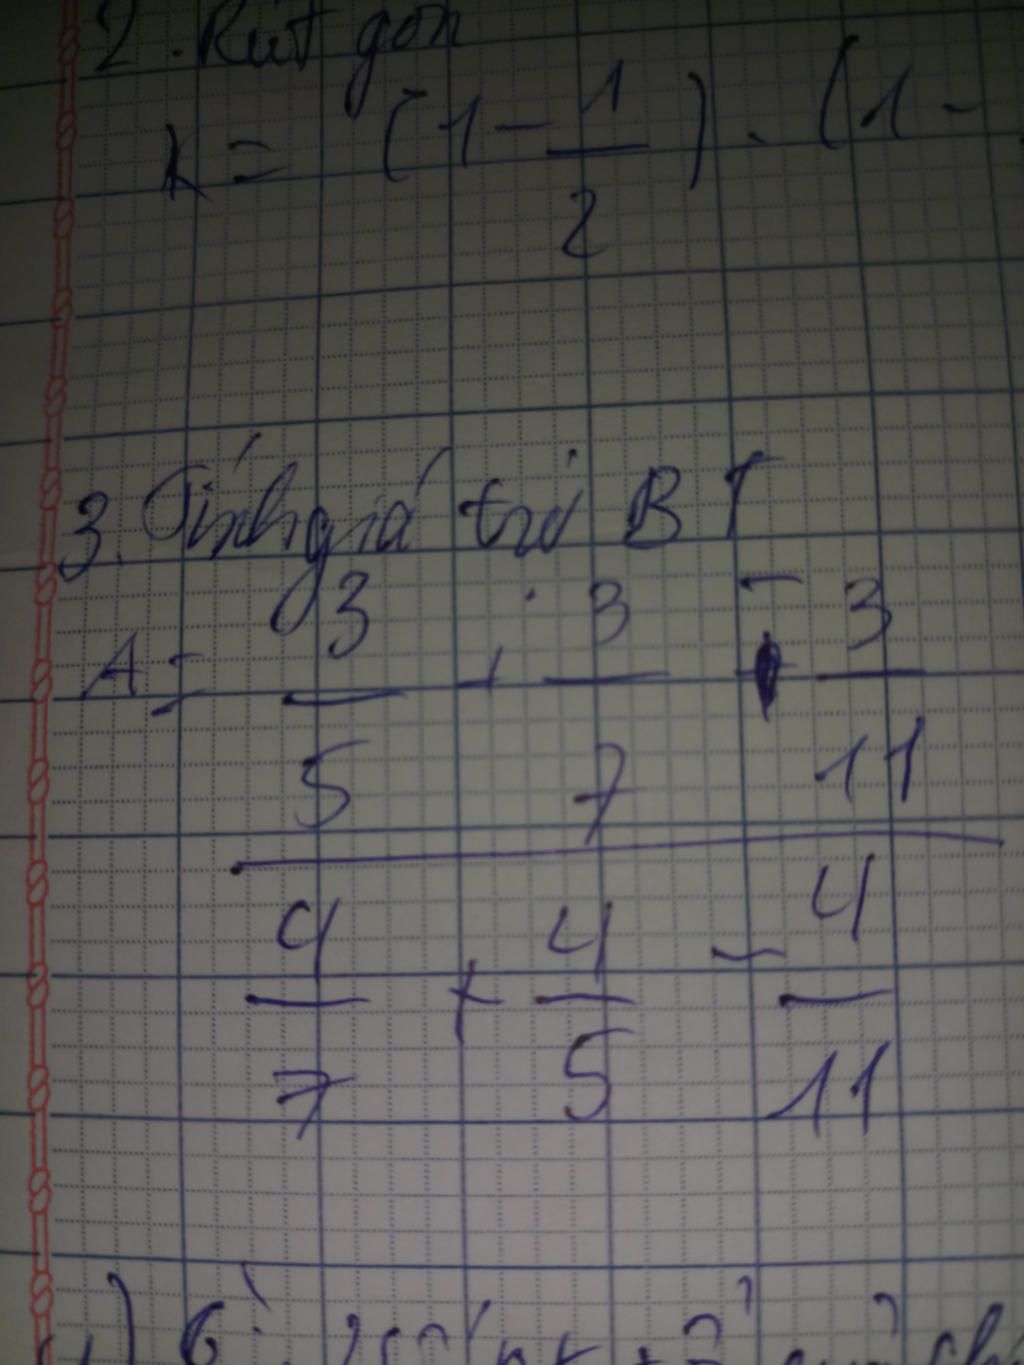 2. Rút gọn
K = (1 - 1/2) . (1 -
3. Tính giá trị BT
A = 3/5 + 3/7 - 3/11
4/7 + 4/5 - 4/11